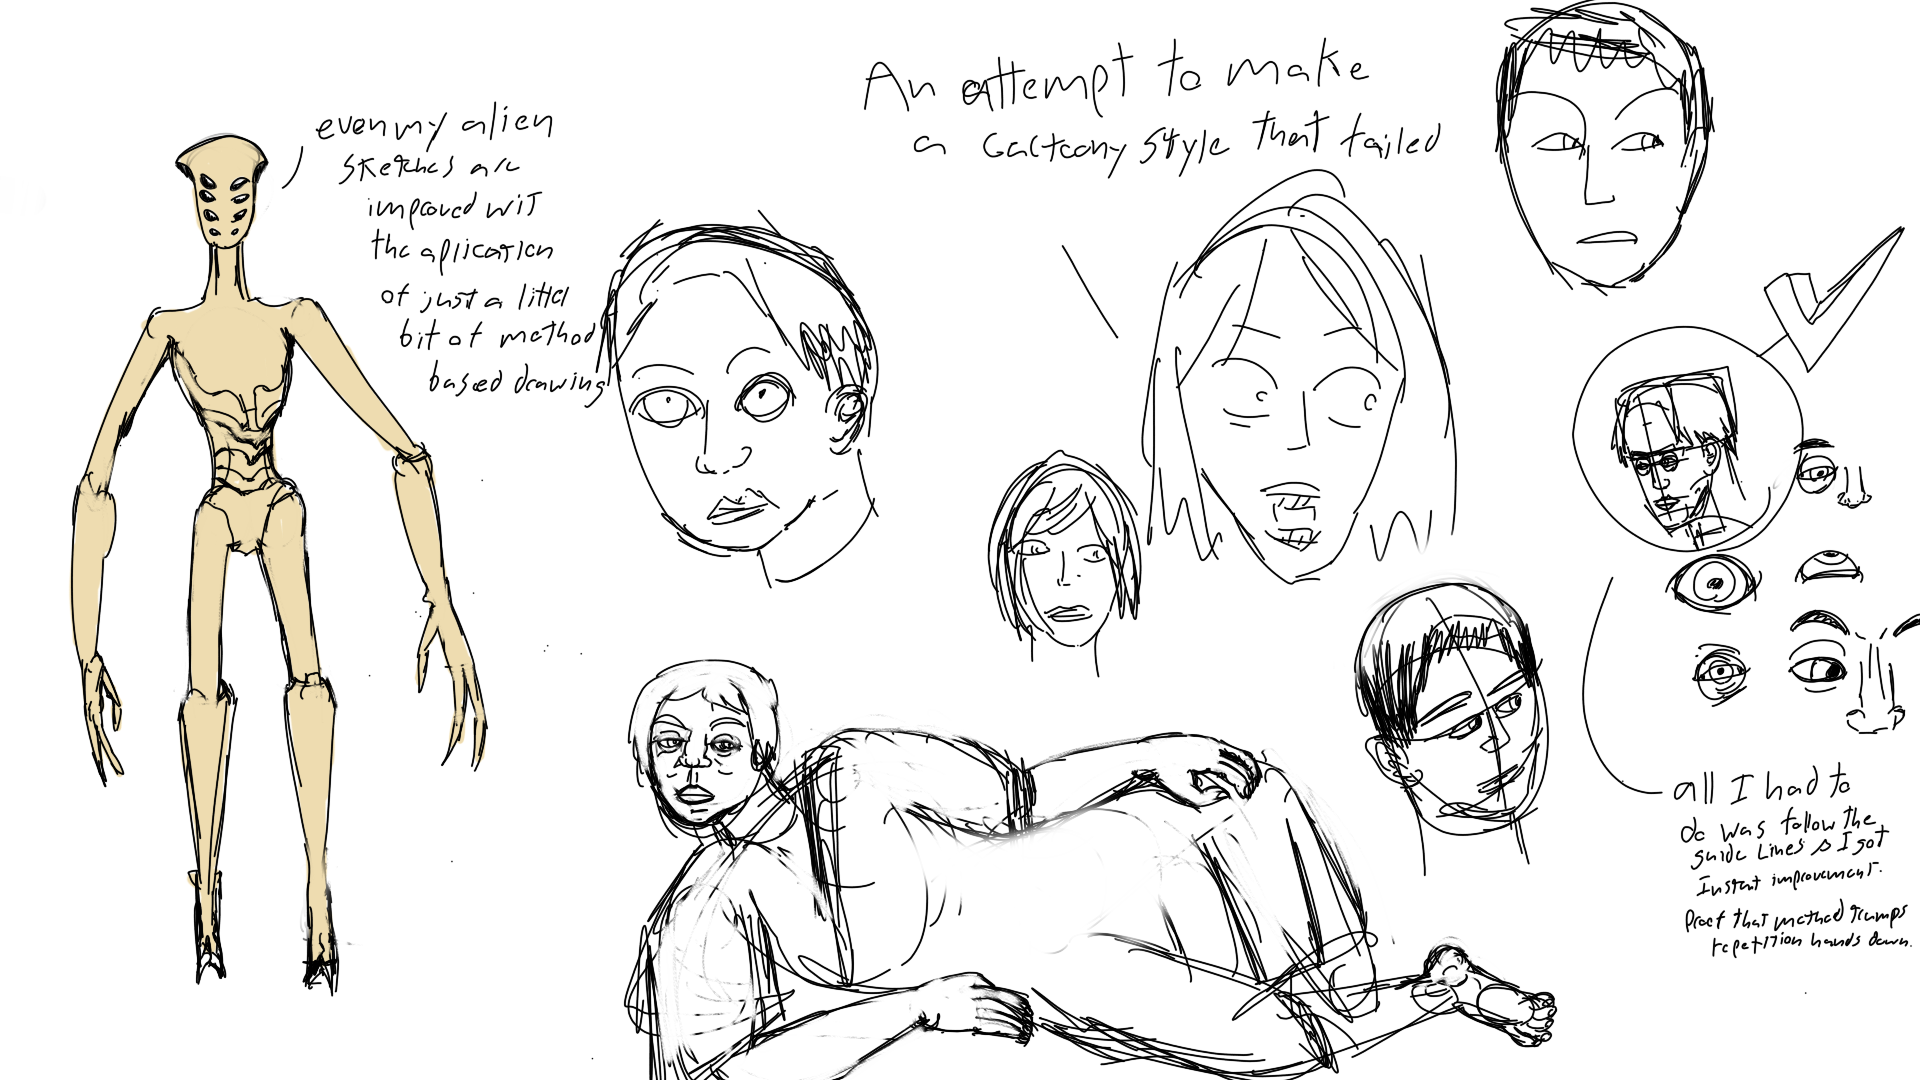 even my alien
sketches are
improved wit
the aplication
of just a littel
bit of method
based drawing
An attempt to make
a Cartoony style that failed
all I had to
do was follow the
guide Lines & I got
Instant improvement.
Proof that method trumps
repetition hands down.